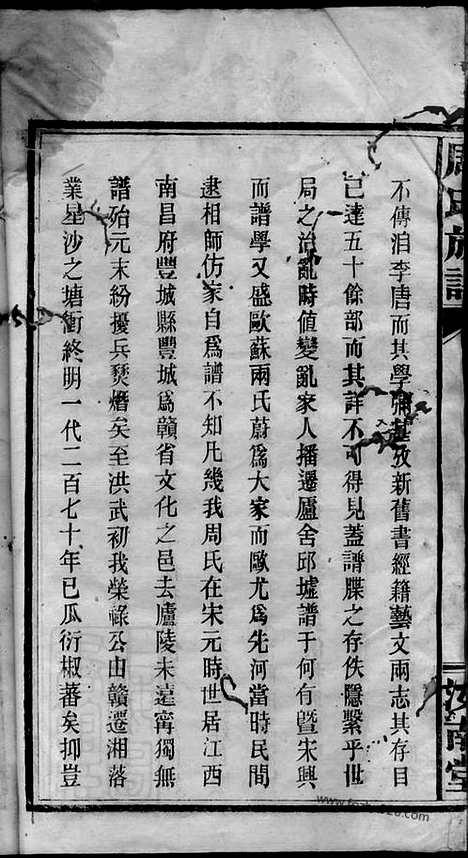 周氏族譜
汝南堂
不傳洎李唐而其學彌甚攷新舊書經籍藝文兩志其存目
已達五十餘部而其詳不可得見蓋譜牒之存佚隱繫乎世
局之治亂時值變亂家人播遷廬舍邱墟譜于何有曁宋興
而譜學又盛歐蘇兩氏蔚爲大家而歐尤爲先河當時民間
逮相師仿家自爲譜不知凡幾我周氏在宋元時世居江西
南昌府豐城縣豐城爲贛省文化之邑去廬陵未遠甯獨無
譜殆元末紛擾兵燹熸矣至洪武初我榮祿公由贛遷湘落
業星沙之塘衝終明一代二百七十年已瓜衍椒蕃矣抑豈